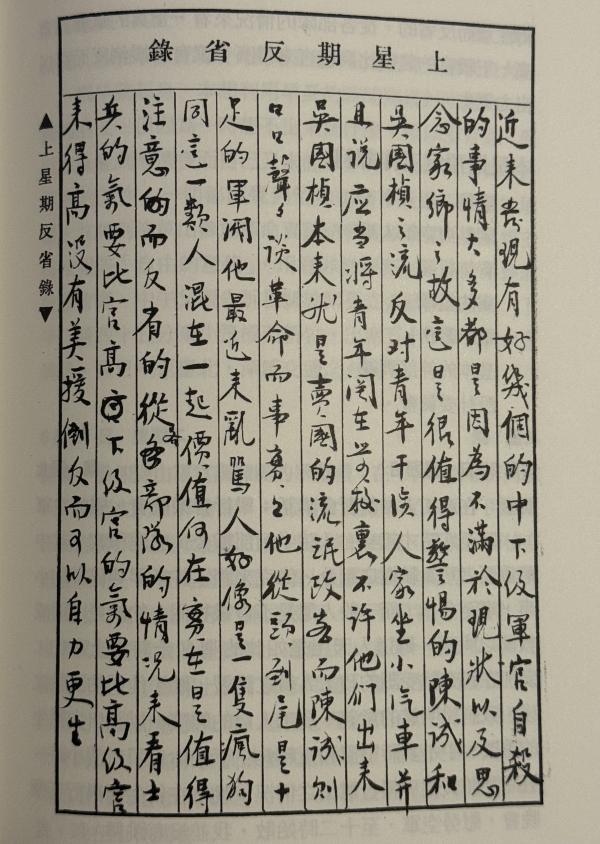 上星期反省錄
近来發現有好幾個的中下级軍官自殺
的事情大多都是因為不滿於現狀以及思
念家鄉之故這是很值得警惕的陳誠和
吳國楨之流反对青年干涉人家坐小汽車并
且说应当將青年関在学校裏不许他们出来
吳國楨本来就是賣國的流氓政客而陳诚则
口口聲々谈革命而事实上他從頭到尾是十
足的軍閥他最近来亂駡人好像是一隻瘋狗
同這一類人混在一起價值何在实在是值得
注意的而反省的從各部隊的情况来看士
兵的氣要比官高下级官的氣要比高级官
来得高沒有美援倒反而可以自力更生
▲上星期反省錄▼